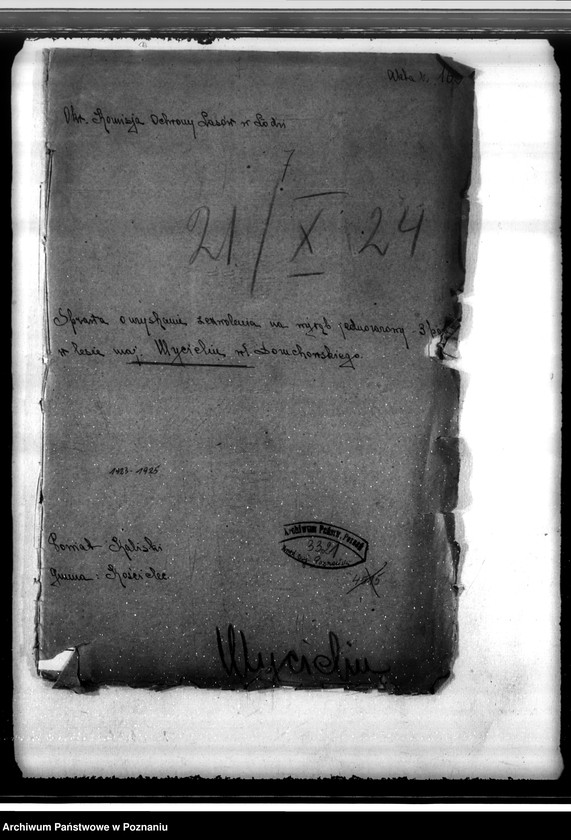 Okr. Komisja Ochrony Lasów w Łodzi
7
21/X 24
Sprawa o uzyskanie zezwolenia na wyrąb jednorazowy 3
w lesie maj. Wycielin wł. Doruchowskiego.
1923-1925
Powiat Kaliski
Gmina: Kościelec.
Archiwum Państw. Poznań
3321
Wycielin
Archiwum Państwowe w Poznaniu